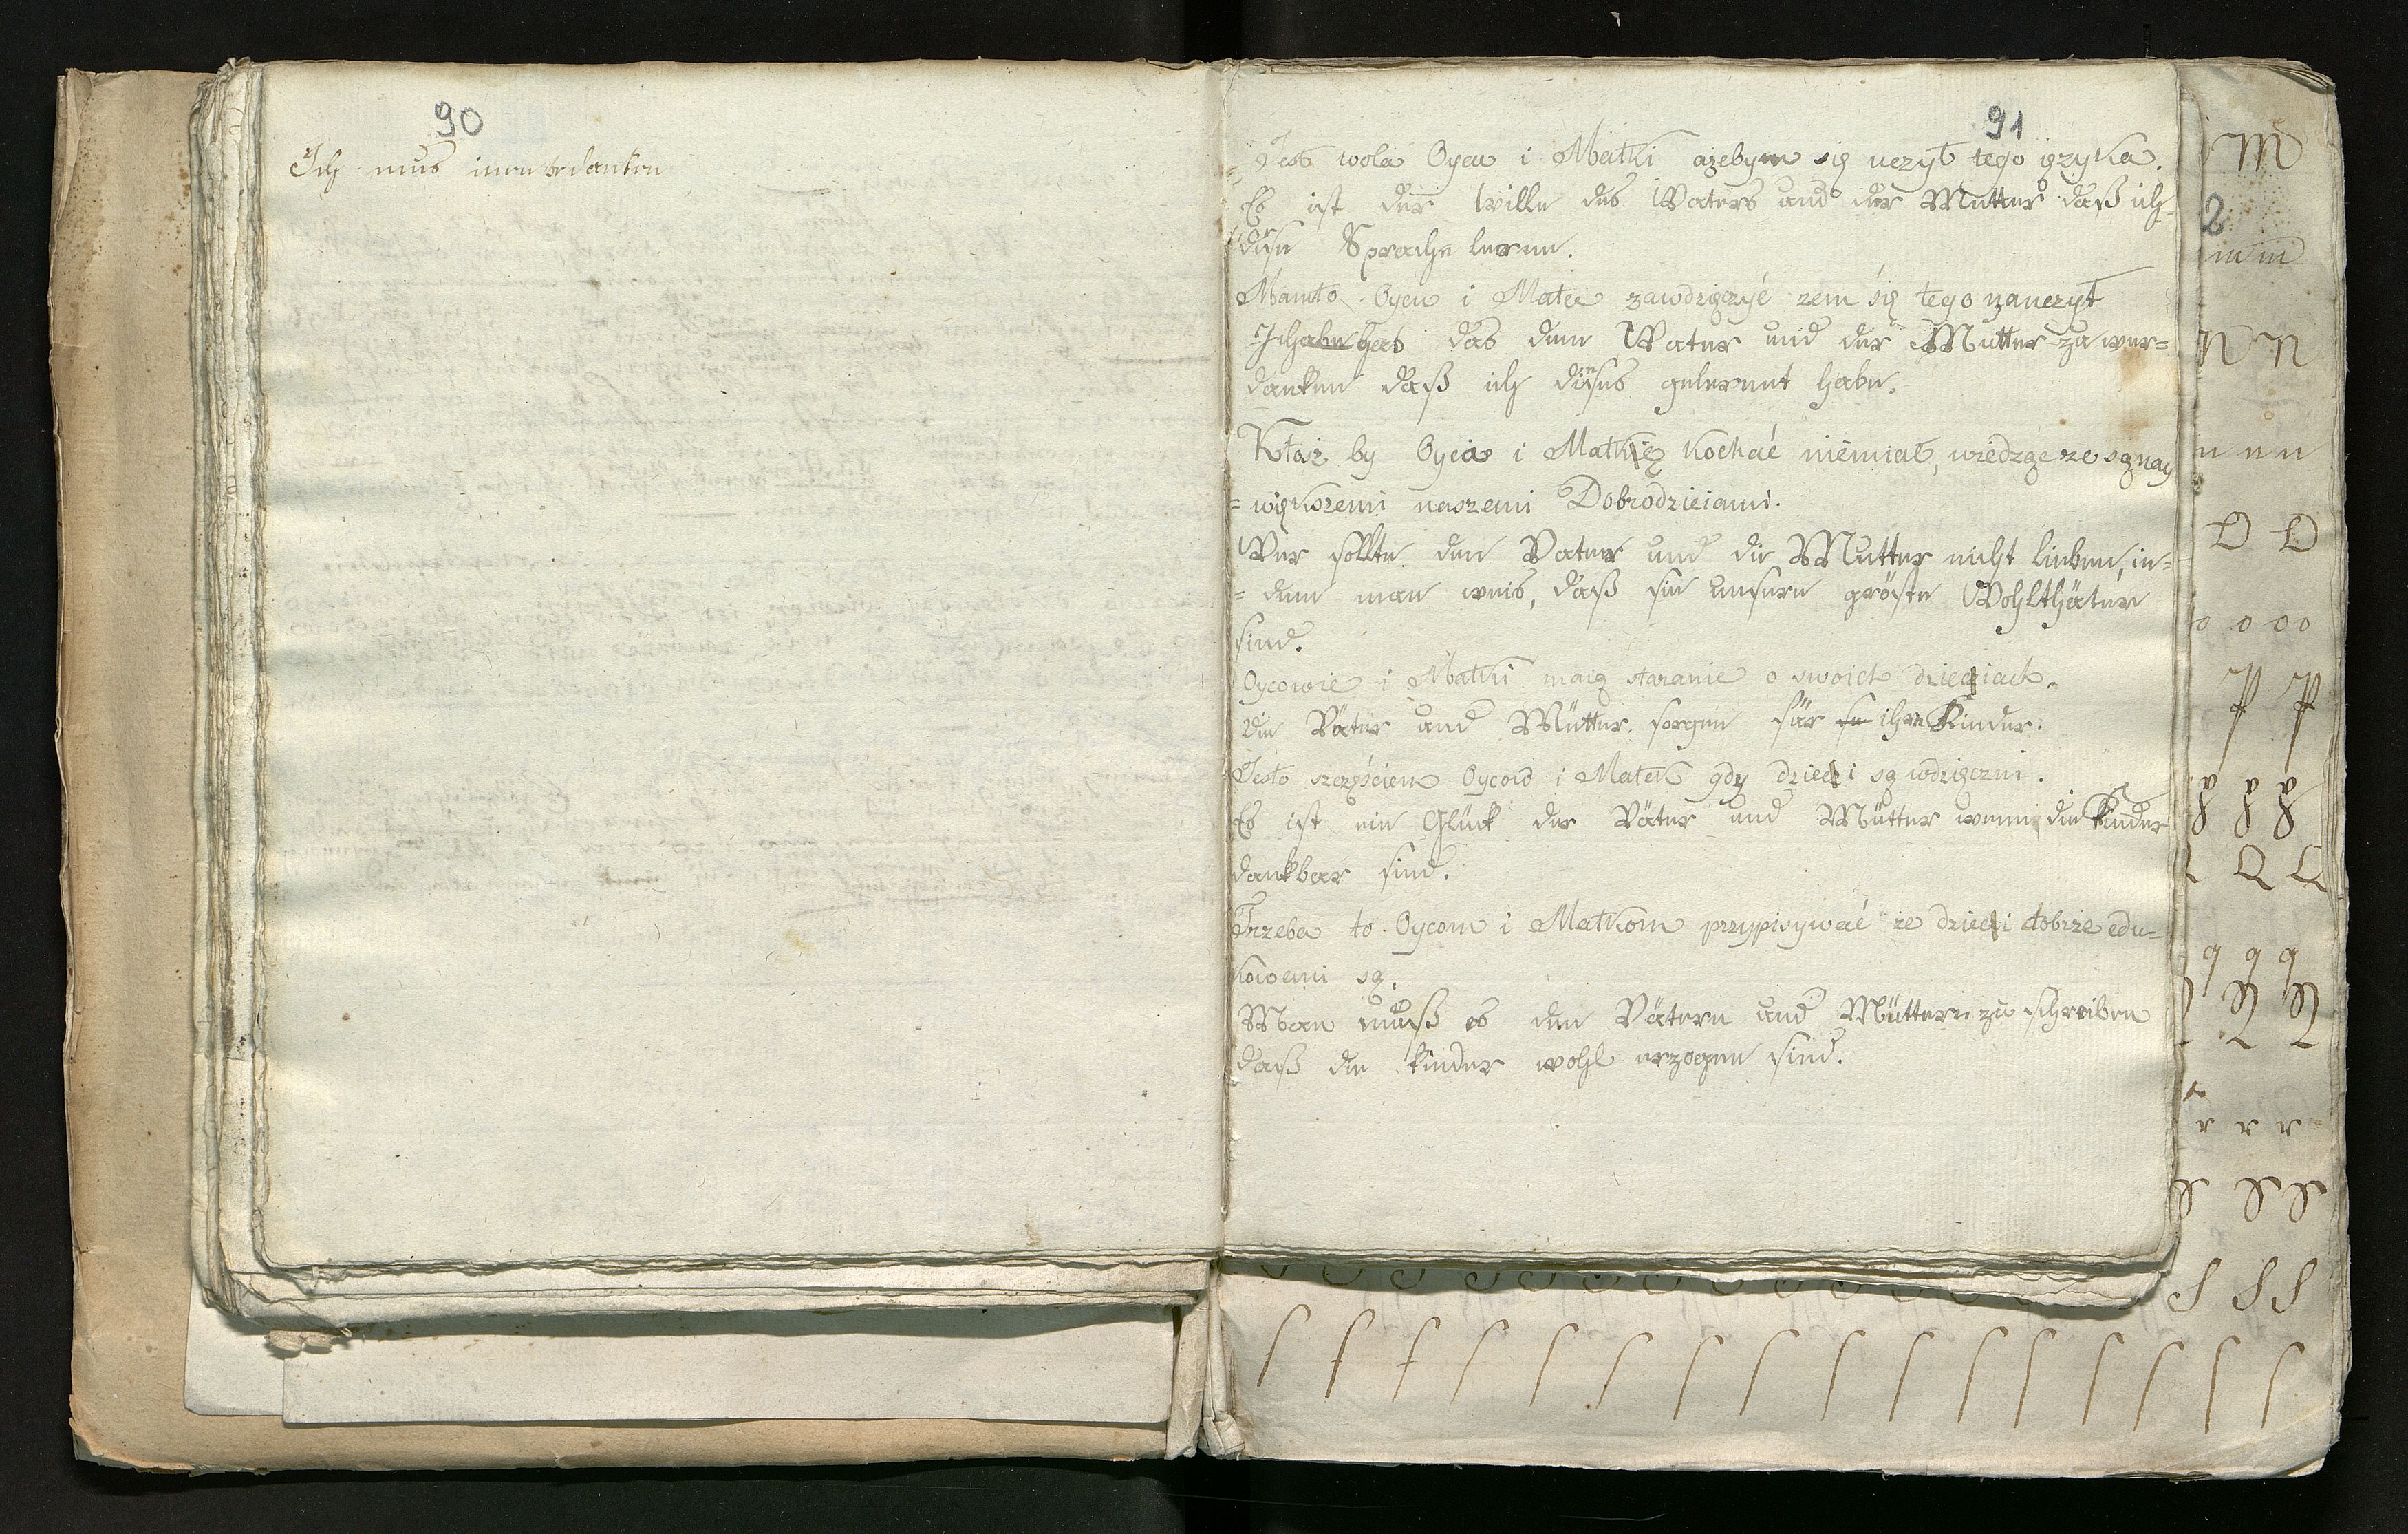 90
Ich mus inen vedanken
91
Jest wola Oyca i Matki ażebym się uczył tego ięzyka.
Es ist der Wille des Vaters und der Mutter daß ich
diese Sprache lerne.
Mamto Oycu i Matce zawdzięczyć żem się tego nauczył
Ich habe das dem Vater und der Mutter zu ver=
danken daß ich dieses gelernnt habe.
Ktosz by Oyca i Matkię kochać niemiał, wiedząc że są nay
= większemi naszemi Dobrodzieiami.
Wer sollte den Vater und die Mutter nicht lieben, in=
= dem man weis, daß sie unsere gröste Wohlthäter
sind.
Oycowie i Matki maią staranie o swoich dzieciach.
Die Väter und Mütter sorgen für ihre Kinder.
Jesto szczęściem Oyców i Matek gdy dzieci są wdzięczni.
Es ist ein Glück der Väter und Mütter wenn die Kinder
dankbar sind.
Trzeba to Oycom i Matkom przypisywać że dzieci dobrze edu=
kowani są.
Man muß es den Vätern und Müttern zu schreiben
daß die Kinder wohl erzogen sind.
M
2
m m
N N
n n n
O O
o o o o
P P
p p p
Q Q
q q q
r r r